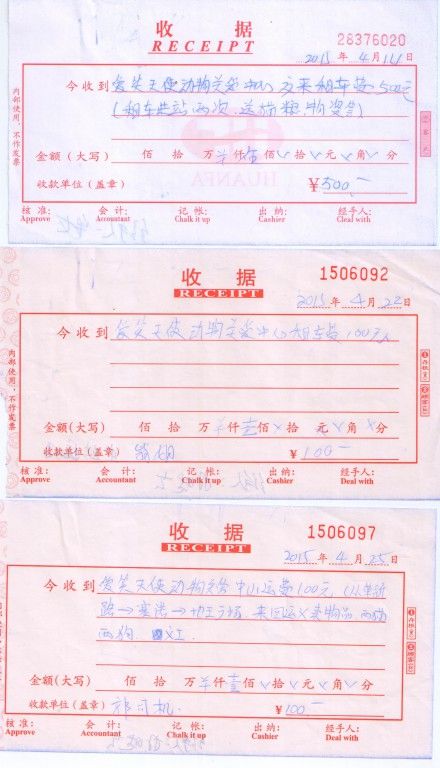 收 据
RECEIPT
28376020
2015 年 4 月 14 日
今收到 爱笑天使动物关爱中心 租车费 500元
(租车进站两次, 送 粮, 物资等)
金额(大写) 佰 拾 万 仟 伍 佰 拾 元 角 分
收款单位(盖章) ¥ 500.—
HUANFA
核 准: 会 计: 记 帐: 出 纳: 经手人:
Approve Accountant Chalk it up Cashier Cleal with
内部使用，不作发票
收 据
RECEIPT
1506092
2015 年 4 月 22 日
今收到 爱笑天使动物关爱中心租车费 100元
金额(大写) 佰 拾 万 仟 壹 佰 拾 元 角 分
收款单位(盖章) ¥ 100.—
核 准: 会 计: 记 帐: 出 纳: 经手人:
Approve Accountant Chalk it up Cashier Deal with
内部使用，不作发票
收 据
RECEIPT
1506097
2015 年 4 月 25 日
今收到 爱笑天使动物 中心运费 100元
路 → → 广场, 来回运义卖物品, 两猫
两狗, 义工.
金额(大写) 佰 拾 万 仟 壹 佰 拾 元 角 分
收款单位(盖章) 祁司机 ¥ 100.—
核 准: 会 计: 记 帐: 出 纳: 经手人:
Approve Accountant Chalk it up Cashier Deal with